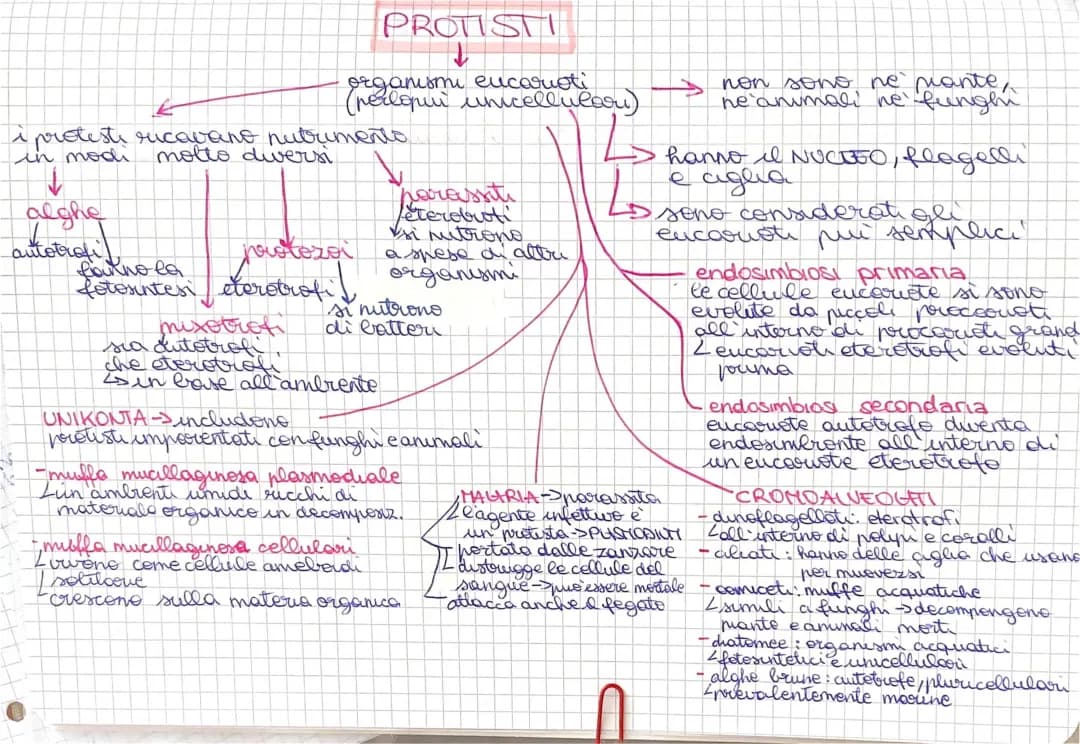 PROTISTI
organismi eucarioti
(perlopiù unicellulari)
non sono nè piante,
nè animali nè funghi
i protisti ricavano nutrimento
in modi molto diversi
hanno il NUCLEO, flagelli
e ciglia
sono considerati gli
eucarioti più semplici
alghe
autotrofi
fanno la
fotosintesi
mixotrofi
sia autotrofi
che eterotrofi
in base all'ambiente
protozoi
eterotrofi
si nutrono
di batteri
parassiti
eterotrofi
si nutrono
a spese di altri
organismi
endosimbiosi primaria
le cellule eucariote si sono
evolute da piccoli procarioti
all'interno di procarioti grandi
eucarioti eterotrofi evoluti
prima
endosimbiosi secondaria
eucariote autotrofo diventa
endosimbionte all'interno di
un eucariote eterotrofo
UNIKONTA → includono
protisti imparentati con funghi e animali
- muffa mucillaginosa plasmodiale
in ambienti umidi ricchi di
materiale organico in decomposiz.
- muffa mucillaginosa cellulari
vivono come cellule ameboidi
solitarie
crescono sulla materia organica
MALARIA → parassita
l'agente infettivo è
un protista → PLASMODI
portato dalle zanzare
distrugge le cellule del
sangue → può essere mortale
attacca anche il fegato
CROMOALVEOLATI
- dinoflagellati: eterotrofi
all'interno di polipi e coralli
- ciliati: hanno delle ciglia che usano
per muoversi
- oomiceti: muffe acquatiche
simili a funghi → decompongono
piante e animali morti
- diatomee: organismi acquatici
fotosintetici e unicellulari
- alghe brune: autotrofe, pluricellulari
prevalentemente marine